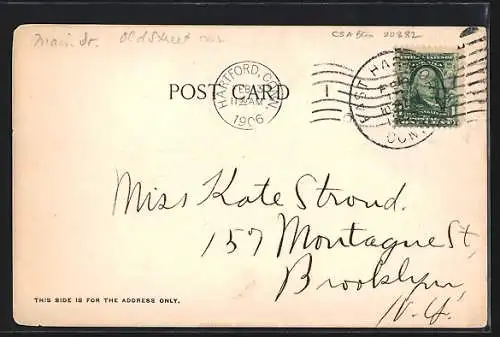 Main St. Old Street car
CSA Bin 20882
POST CARD
HARTFORD, CONN.
FEB
11 AM
1906
EAST HA
CONN
Miss Kate Stroud.
157 Montague St,
Brooklyn,
N.Y.
THIS SIDE IS FOR THE ADDRESS ONLY.